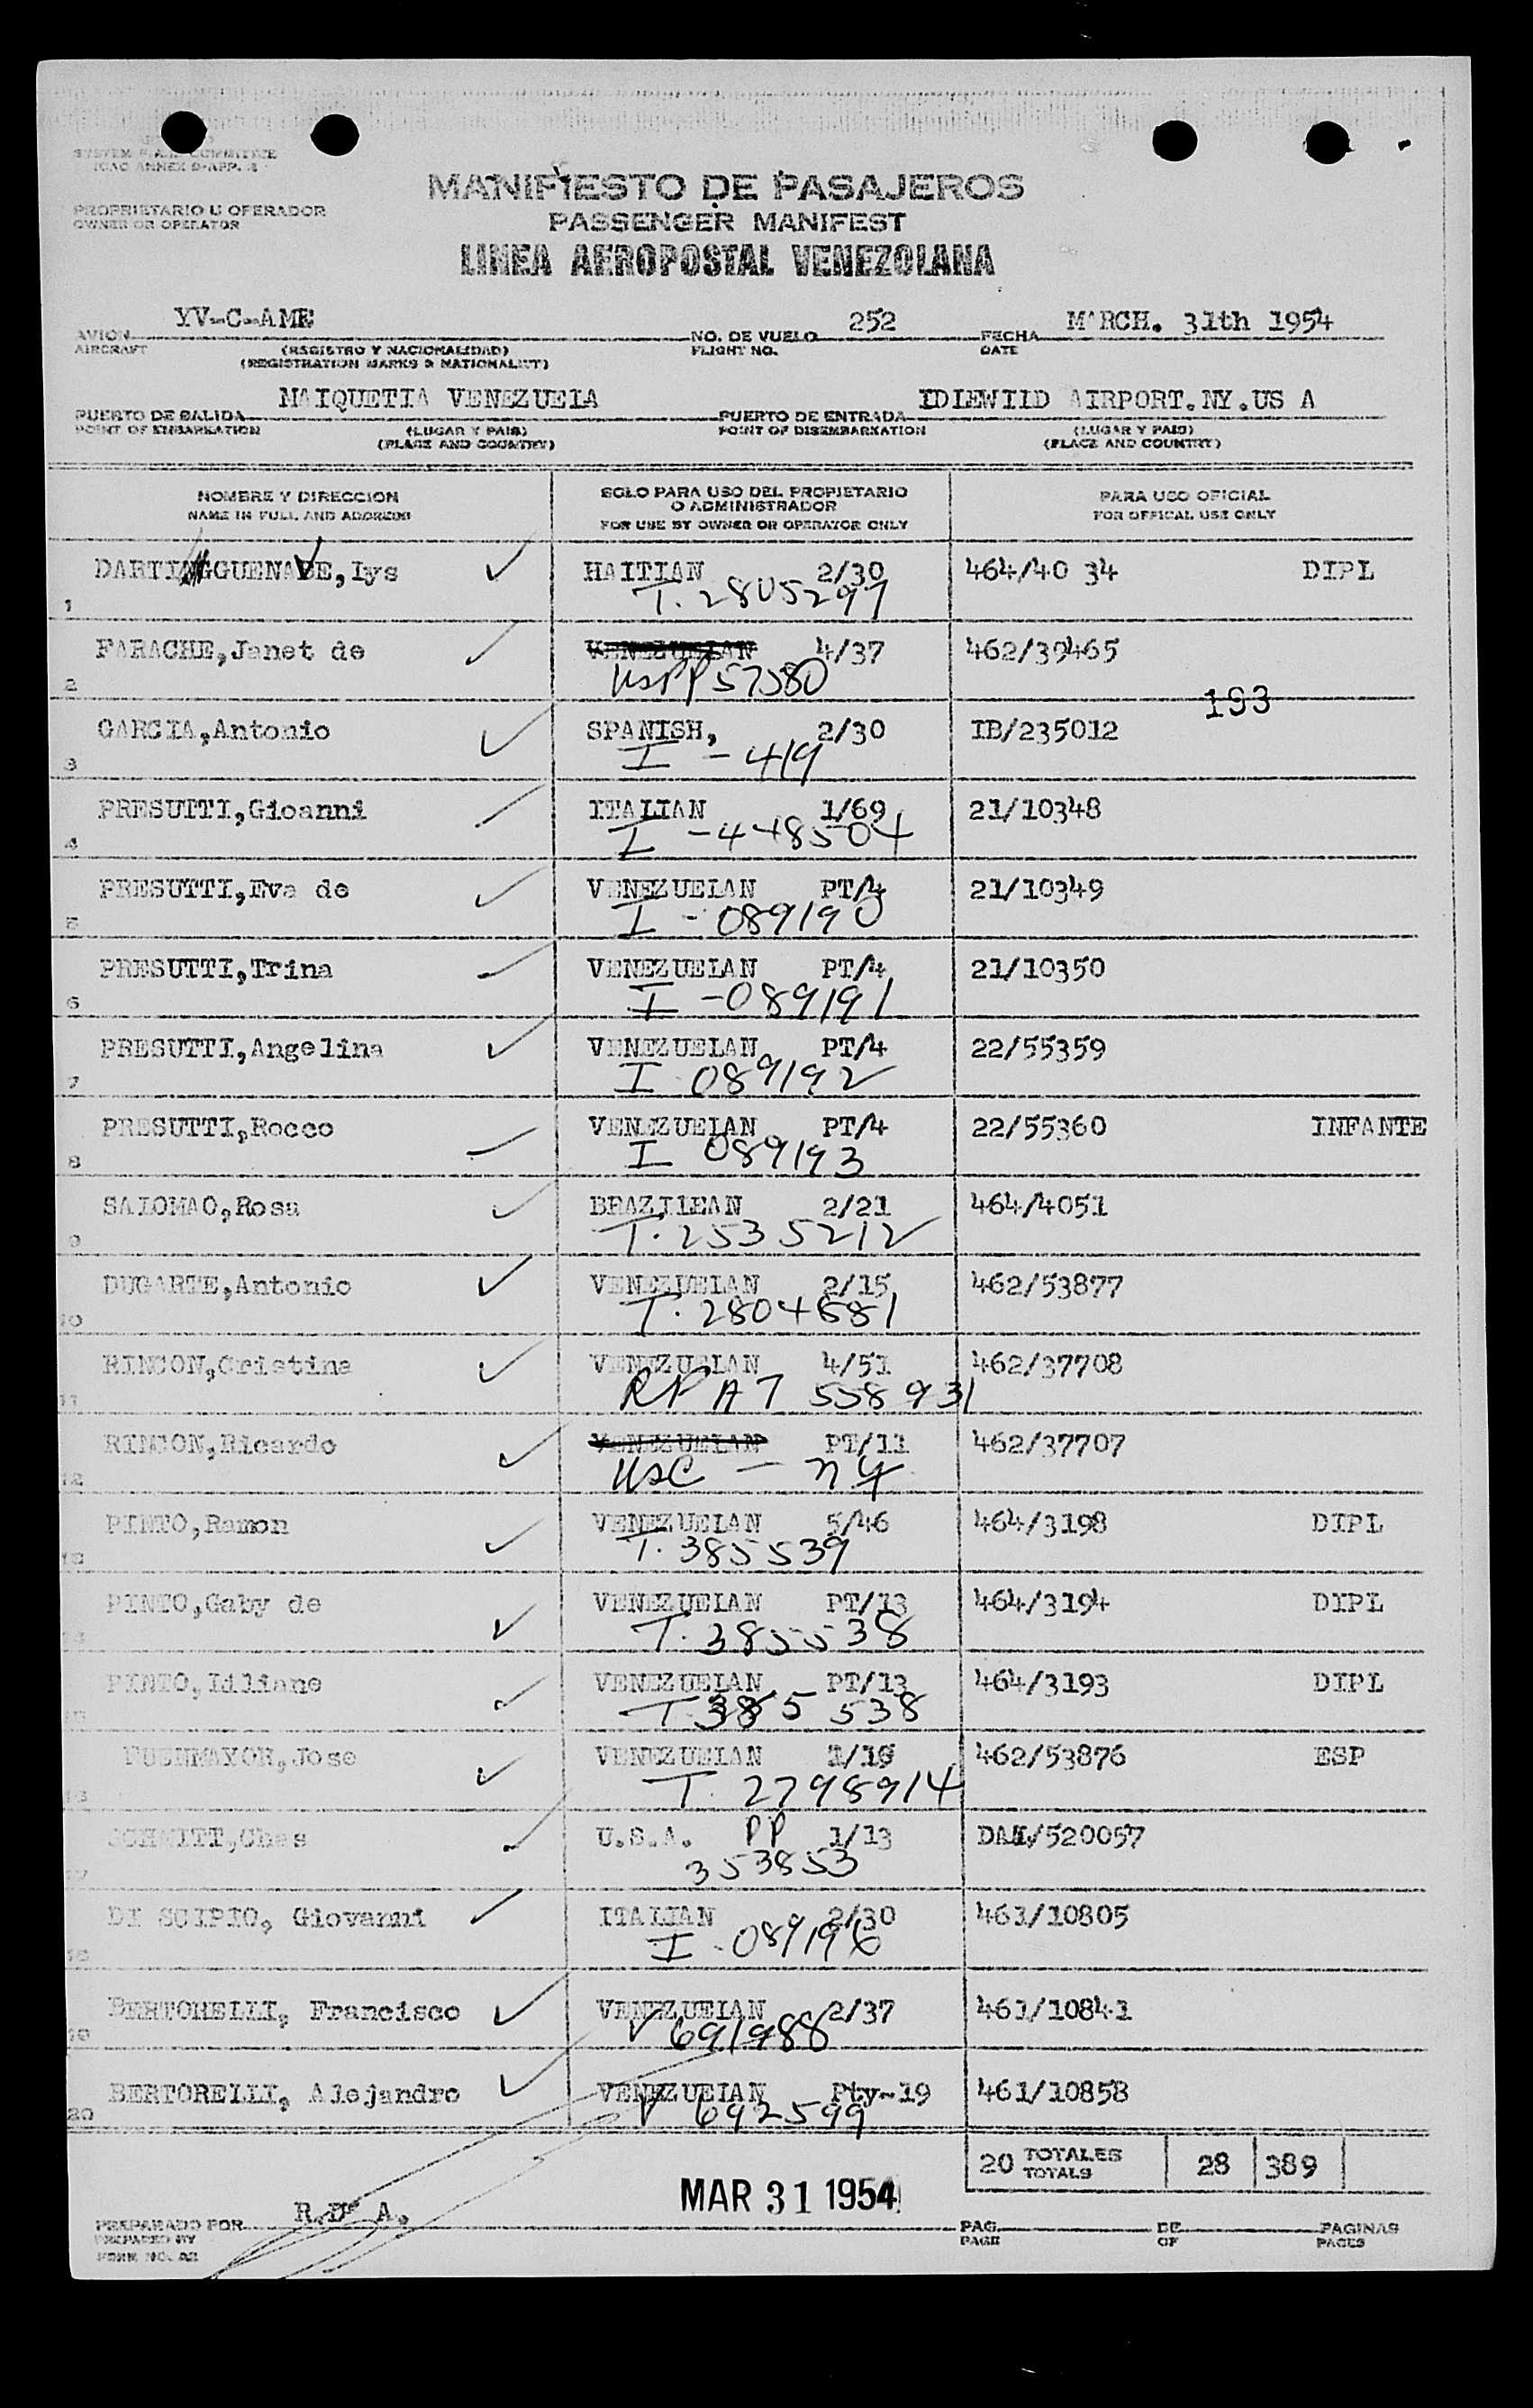 SYSTEM COMMITTEE
ICAO ANNEX 9-APP.
MANIFIESTO DE PASAJEROS
PROPRIETARIO U OPERADOR
OWNER OR OPERATOR
PASSENGER MANIFEST
LINEA AEROPOSTAL VENEZOLANA
AVION YV-C-AME NO. DE VUELO 252 FECHA MARCH. 31th 1954
AIRCRAFT (REGISTRO Y NACIONALIDAD) FLIGHT NO. DATE
(REGISTRATION MARKS & NATIONALITY)
PUERTO DE SALIDA MAIQUETIA VENEZUELA PUERTO DE ENTRADA IDLEWILD AIRPORT.NY.US A
POINT OF EMBARKATION (LUGAR Y PAIS) POINT OF DISEMBARKATION (LUGAR Y PAIS)
(PLACE AND COUNTRY) (PLACE AND COUNTRY)
NOMBRE Y DIRECCION SOLO PARA USO DEL PROPIETARIO O ADMINISTRADOR PARA USO OFICIAL
NAME IN FULL AND ADDRESS FOR USE BY OWNER OR OPERATOR ONLY FOR OFFICAL USE ONLY
Lys HAITIAN 2/30 464/40 34 DIPL
1 T. 2805299
FARACHE,Janet de VENEZUELAN 4/37 462/39465
2 USPP 57580
193
GARCIA,Antonio SPANISH, 2/30 IB/235012
3 I - 419
PRESUTTI,Gioanni ITALIAN 1/69 21/10348
4 I - 448504
PRESUTTI,Eva de VENEZUELAN PT/4 21/10349
5 I - 089190
PRESUTTI,Trina VENEZUELAN PT/4 21/10350
6 I - 089191
PRESUTTI,Angelina VENEZUELAN PT/4 22/55359
7 I 089192
PRESUTTI,Rocco VENEZUELAN PT/4 22/55360 INFANTE
8 I 089193
SALOMAO,Rosa BRAZILEAN 2/21 464/4051
9 T. 2535212
DUGARTE,Antonio VENEZUELAN 2/15 462/53877
10 T. 2804681
RINCON,Cristina VENEZUELAN 4/51 462/37708
11 RP A7 558931
RINCON,Ricardo VENEZUELAN PT/11 462/37707
12 USC - NY
PINTO,Ramon VENEZUELAN 5/46 464/3198 DIPL
13 T. 385539
PINTO,Gaby de VENEZUELAN PT/13 464/3194 DIPL
14 T. 385538
PINTO,Liliane VENEZUELAN PT/13 464/3193 DIPL
15 T. 385 538
FUENMAYOR,Jose VENEZUELAN 462/53876 ESP
16 T. 2798914
SCHMITT,Chas U.S.A. PP 1/13 520057
17 353853
DI SCIPIO, Giovanni ITALIAN 2/30 461/10805
18 I - 089196
BERTORELLI, Francisco VENEZUELAN 2/37 461/10841
19 V 691988
BERTORELLI, Alejandro VENEZUELAN Pty-19 461/10858
20 V 692599
20 TOTALES 28 389
TOTALS
MAR 31 1954
PREPARADO POR PAG. DE PAGINAS
PREPARED BY PAGE OF PAGES
FORM NO.